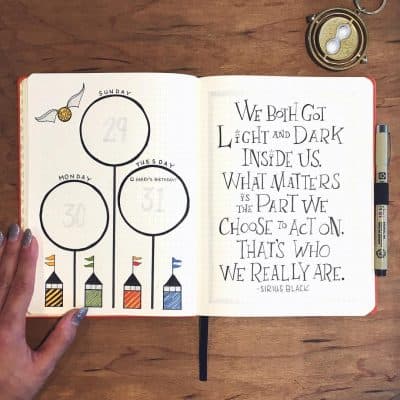 SUNDAY
29
TUESDAY
HARRY'S BIRTHDAY!
31
MONDAY
30
WE BOTH GOT
LIGHT AND DARK
INSIDE US.
WHAT MATTERS
IS THE PART WE
CHOOSE TO ACT ON.
THAT'S WHO
WE REALLY ARE.
-SIRIUS BLACK